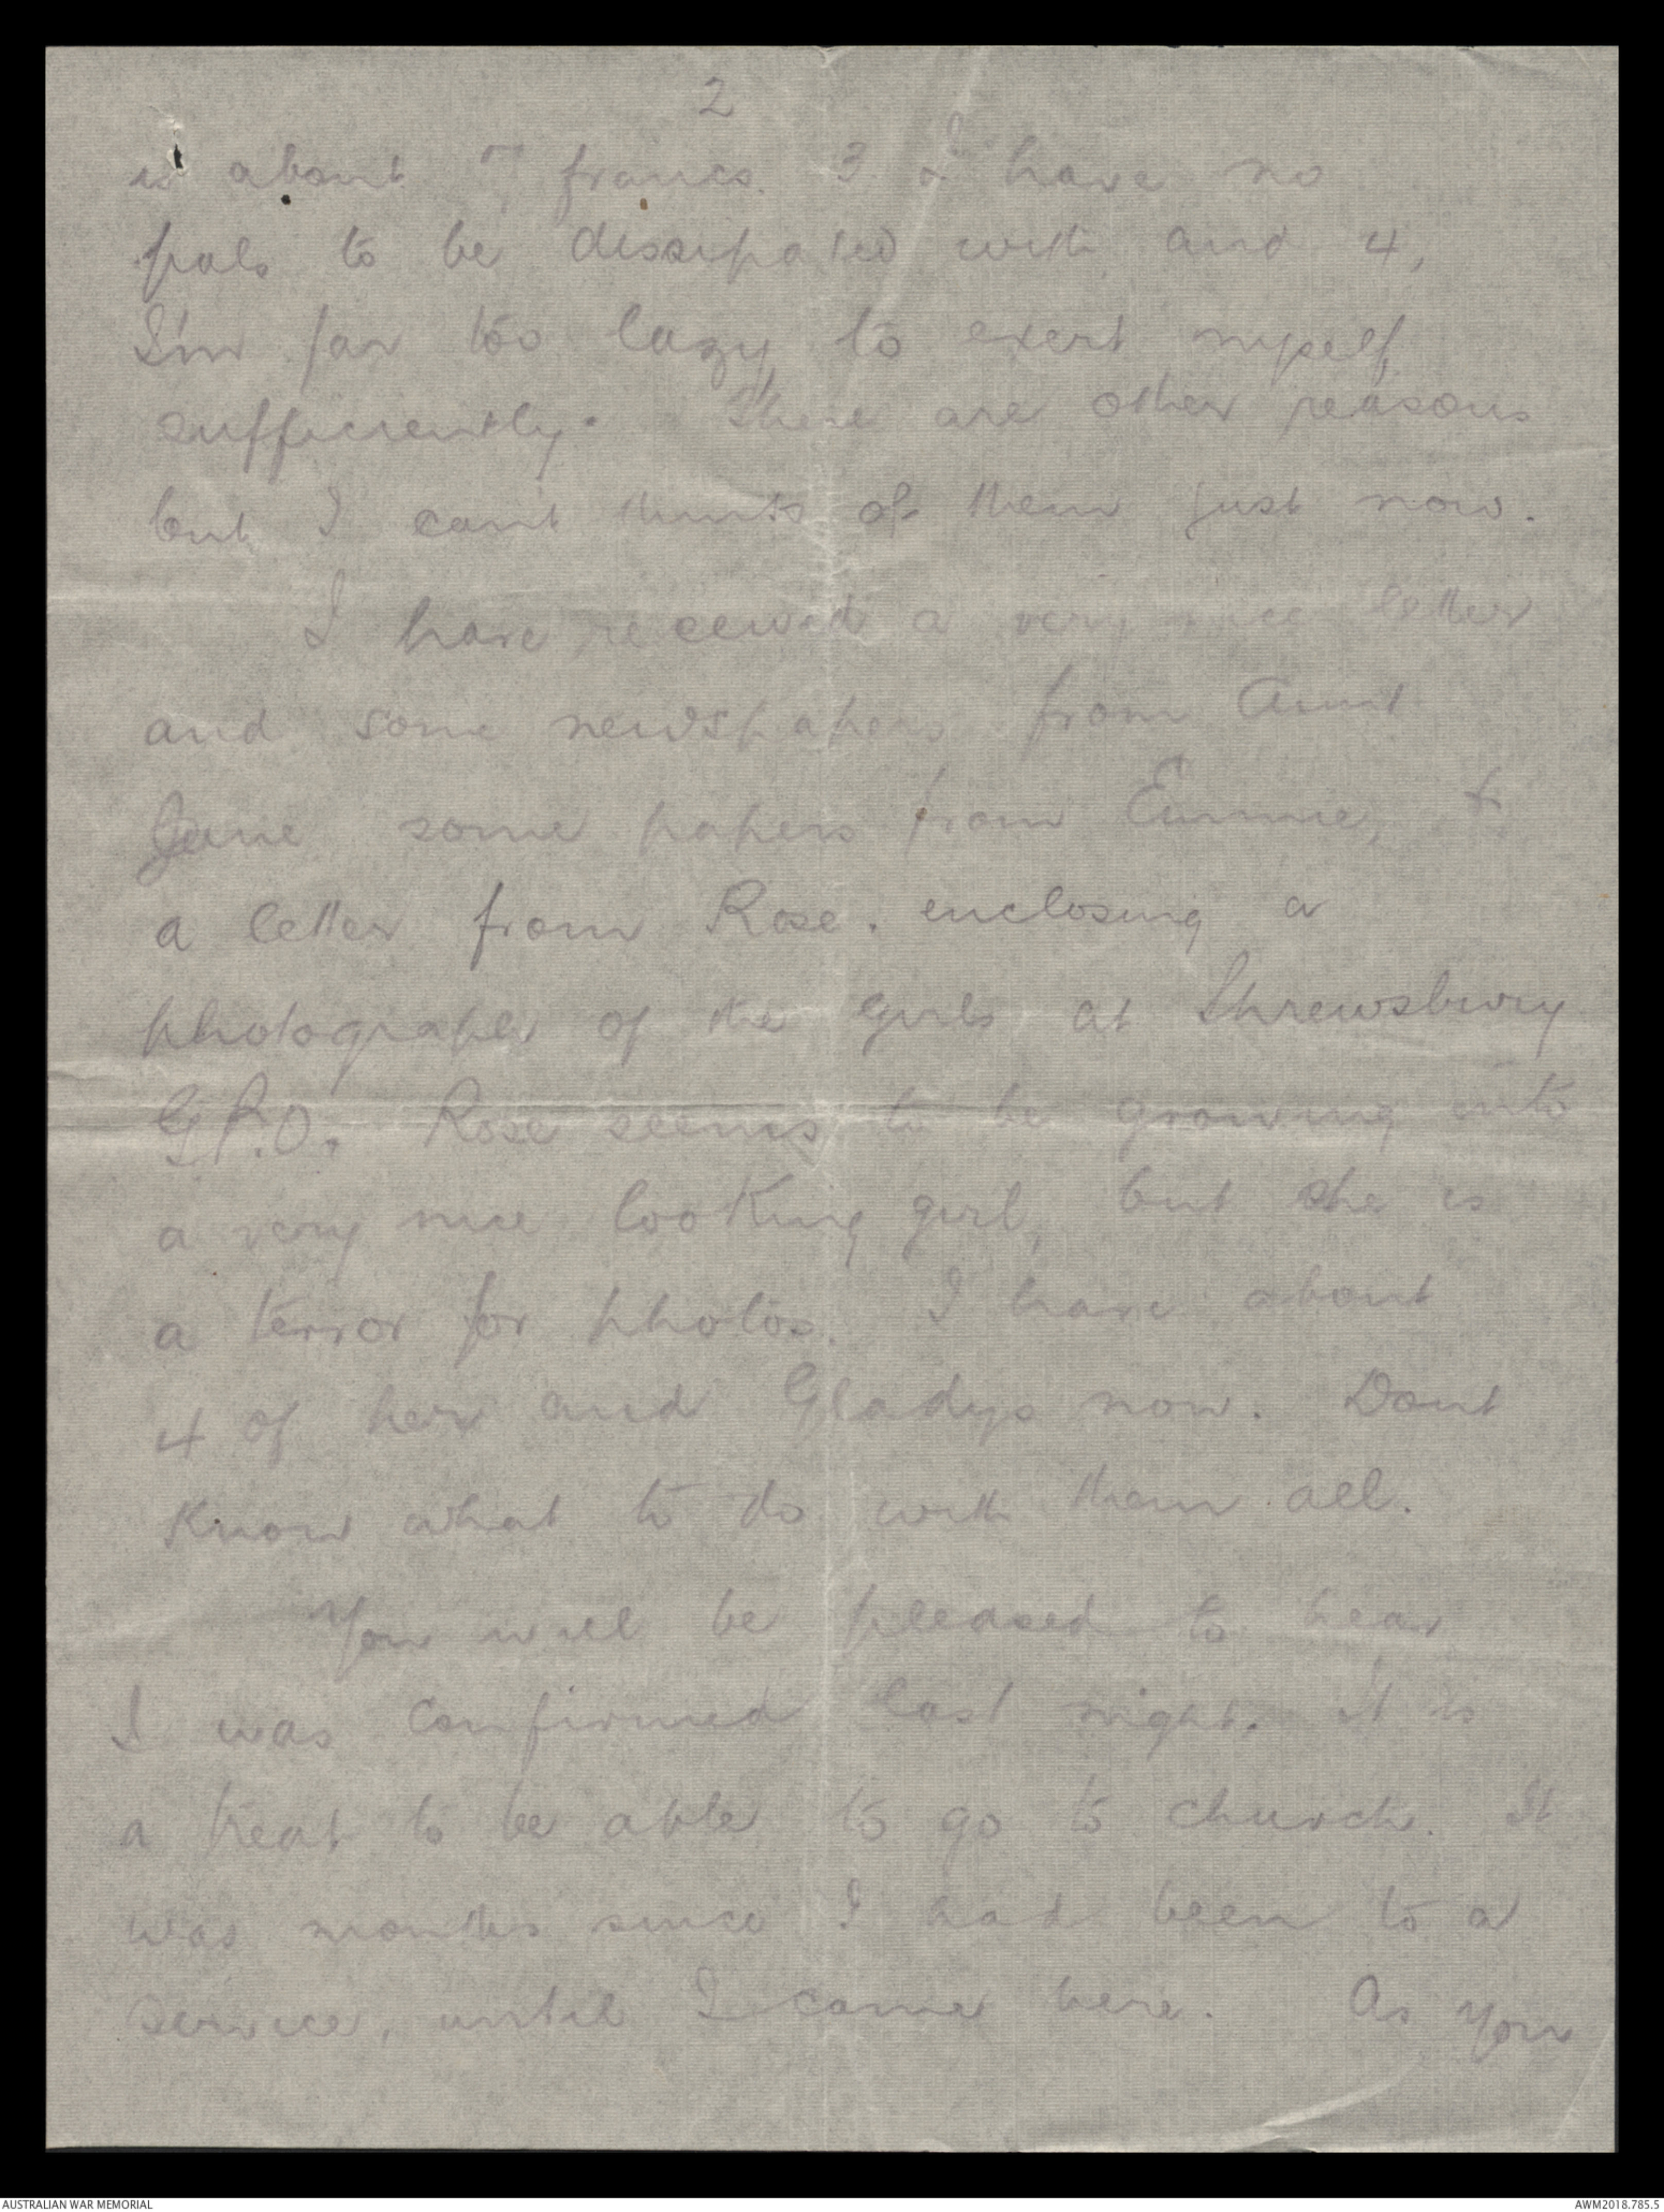 2
is about francs. 3 I have no
pals to be dissipated with and 4,
I'm far too lazy to exert myself
sufficiently. There are other reasons
but I can't think of them just now.
I have received a very nice letter
and some newspapers from Aunt
Jane some papers from Eunnie, &
a letter from Rose. enclosing a
photograph of the girls at Shrewsbury
G.P.O. Rose seems to be growing into
a very nice looking girl, but she is
a terror for photos. I have about
4 of her and Gladys now. Dont
know what to do with them all.
You will be pleased to hear
I was confirmed last night. It is
a treat to be able to go to church. It
was months since I had been to a
service, until I came here. As you
AUSTRALIAN WAR MEMORIAL
AWM2018.785.5